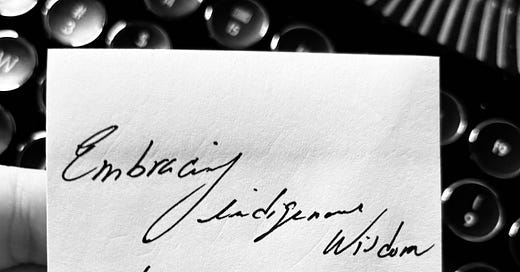 Embracing
indigenous
Wisdom